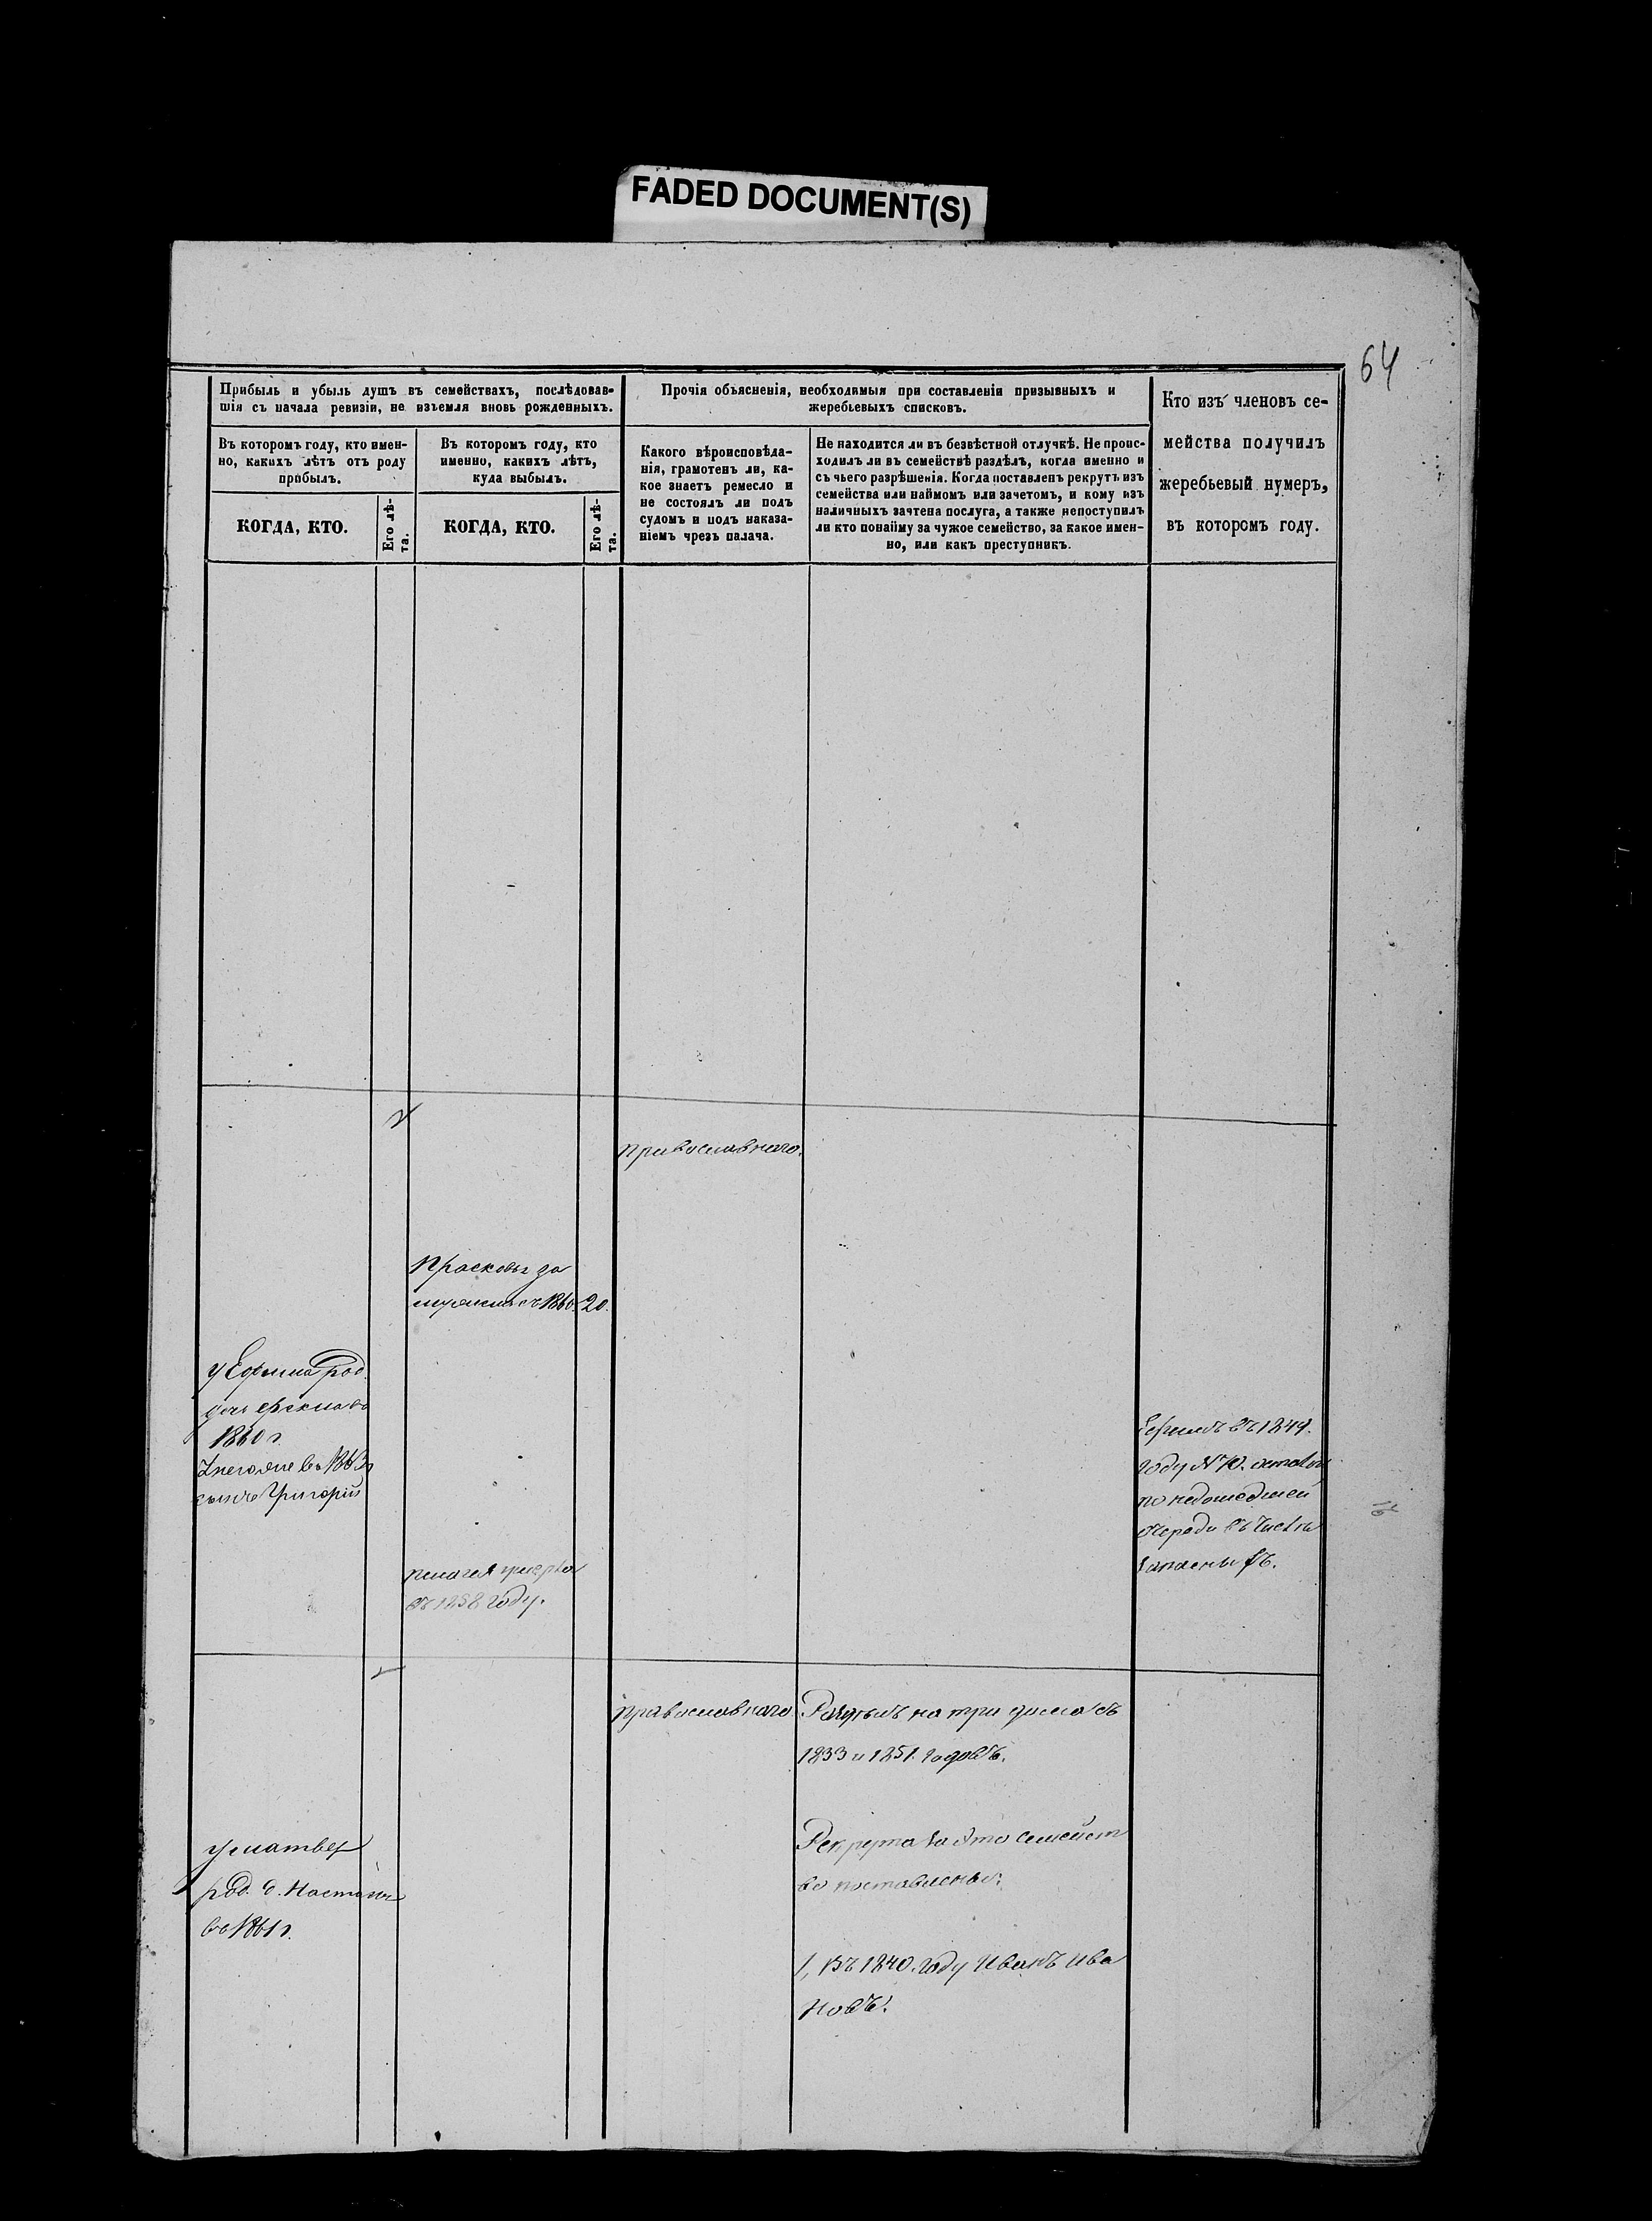 FADED DOCUMENT(S)
64
Прибыль и убыль душъ въ семействахъ, послѣдовав-
шія съ начала ревизіи, не изъемля вновь рожденныхъ.
Въ которомъ году, кто имен-
но, какихъ лѣтъ отъ роду
прибылъ.
КОГДА, КТО.
Его лѣ-
та.
Въ которомъ году, кто
именно, какихъ лѣтъ,
куда выбылъ.
КОГДА, КТО.
Его лѣ-
та.
Прочія объясненія, необходимыя при составленіи призывныхъ и
жеребьевыхъ списковъ.
Какого вѣроисповѣда-
нія, грамотенъ ли, ка-
кое знаетъ ремесло и
не состоялъ ли подъ
судомъ и подъ наказа-
ніемъ чрезъ палача.
Не находится ли въ безвѣстной отлучкѣ. Не проис-
ходилъ ли въ семействѣ раздѣлъ, когда именно и
съ чьего разрѣшенія. Когда поставленъ рекрутъ изъ
семейства или наймомъ или зачетомъ, и кому изъ
наличныхъ зачтена послуга, а также непоступилъ
ли кто понайму за чужое семейство, за какое имен-
но, или какъ преступникъ.
Кто изъ членовъ се-
мейства получилъ
жеребьевый нумеръ,
въ которомъ году.
православнаго.
Прасковья за
мужемъ съ 1860. 20.
у Ефима род.
дочь
1860 г.
Унегоже въ 1863 г
сынъ Григорій
Ефимъ въ 1849.
году № 70. остался
по недошедшей
череди въ числѣ
запасныхъ.
Пелагея умерла
въ 1858 году.
православнаго
Раздѣлъ на три дома въ
1833 и 1851. годовъ.
у Матвея
род. д. Настасья
въ 1861 г.
Рекрута за это семейст
во поставлены:
1, Въ 1840. году Иванъ Ива
новъ.